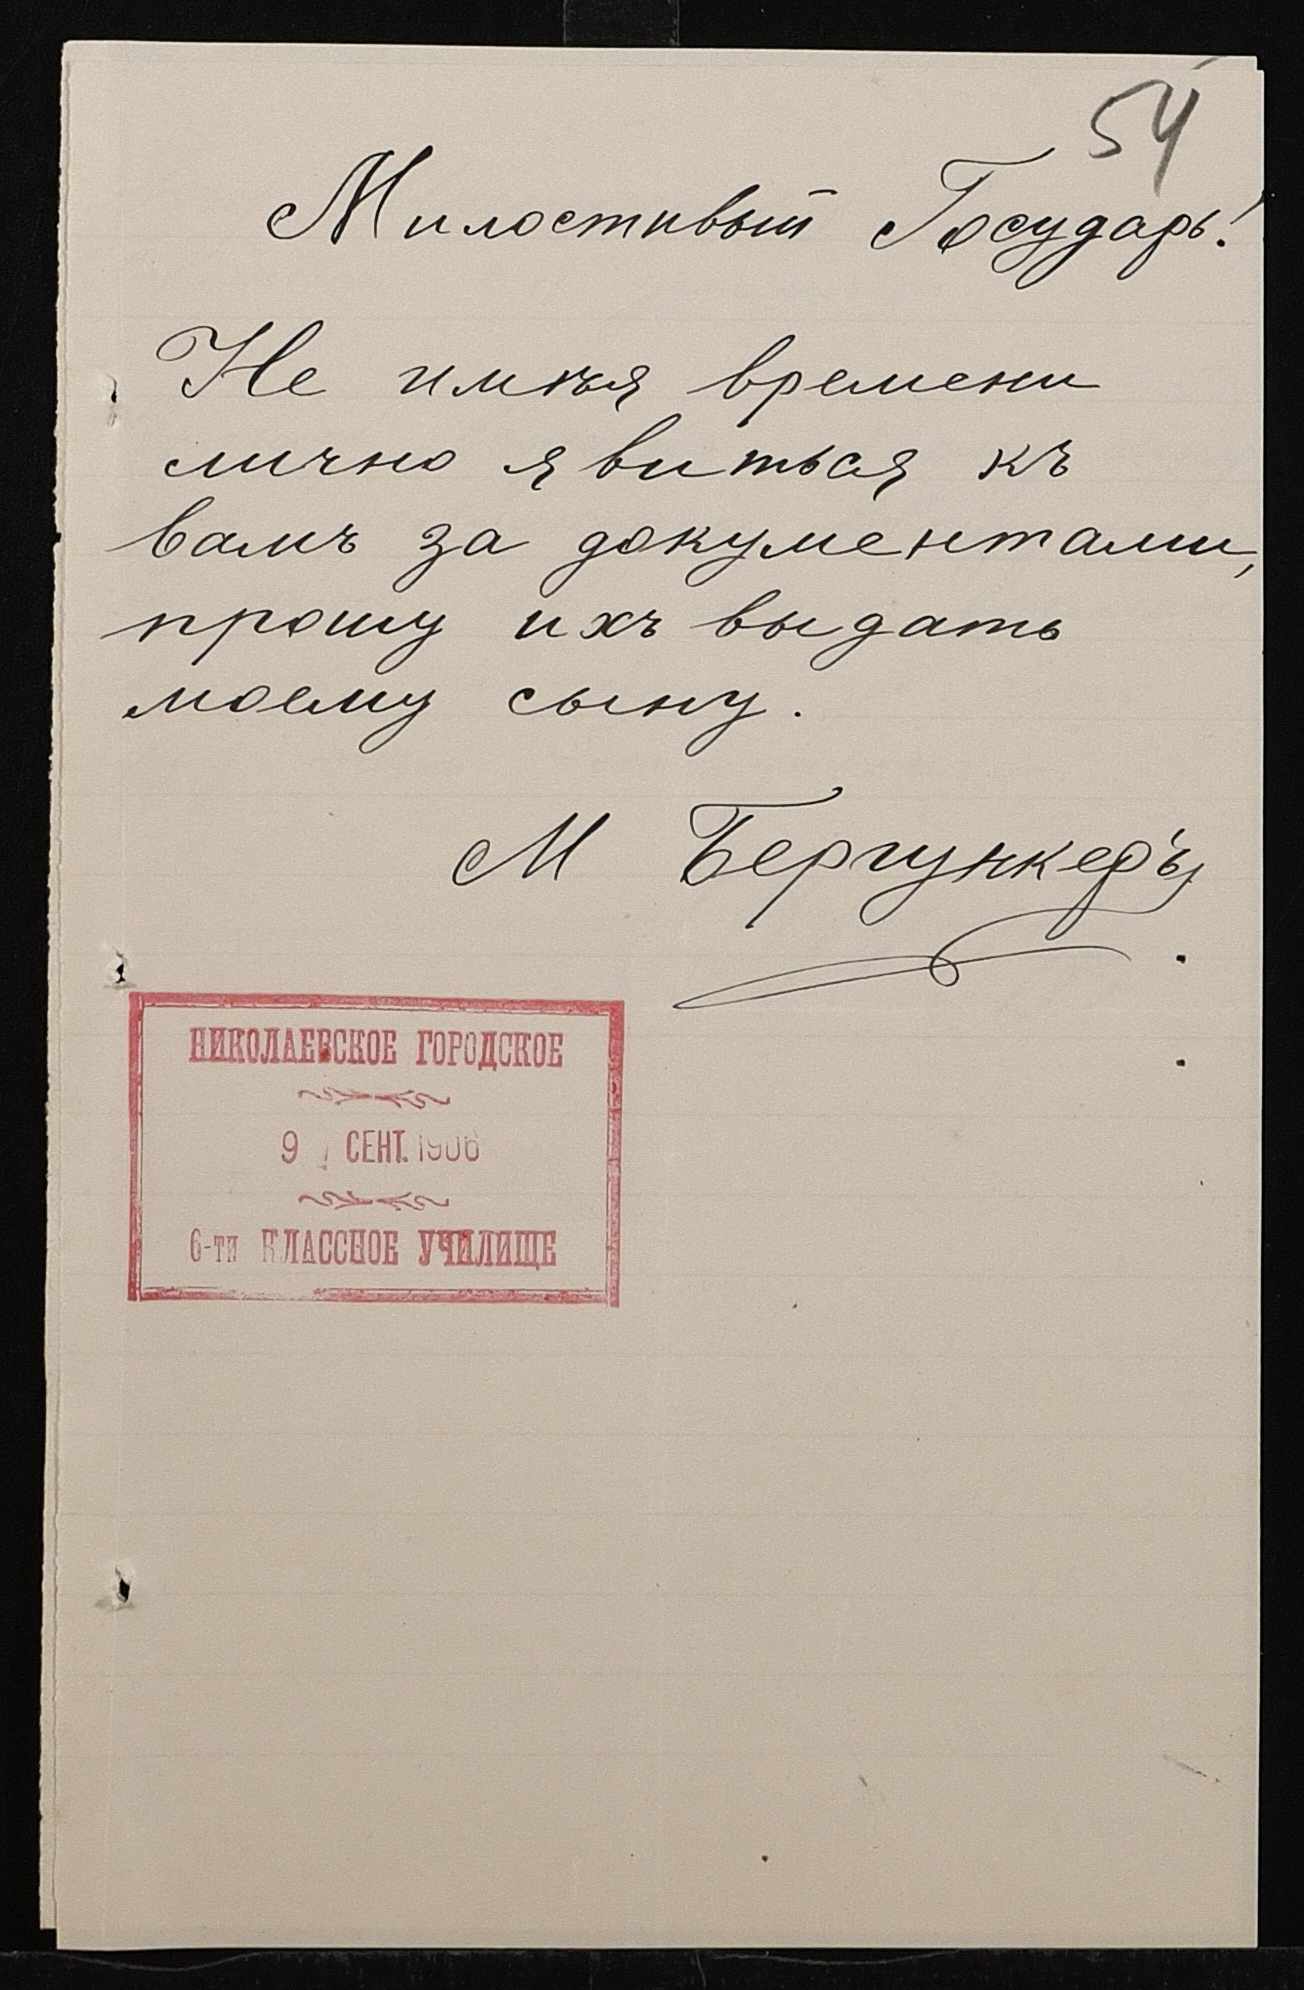 54
Милостивый Государь!
Не имѣя времени
лично явиться къ
вамъ за документами,
прошу ихъ выдать
моему сыну.
М Бергункеръ
НИКОЛАЕВСКОЕ ГОРОДСКОЕ
9 СЕНТ. 1906
6-ти КЛАССНОЕ УЧИЛИЩЕ